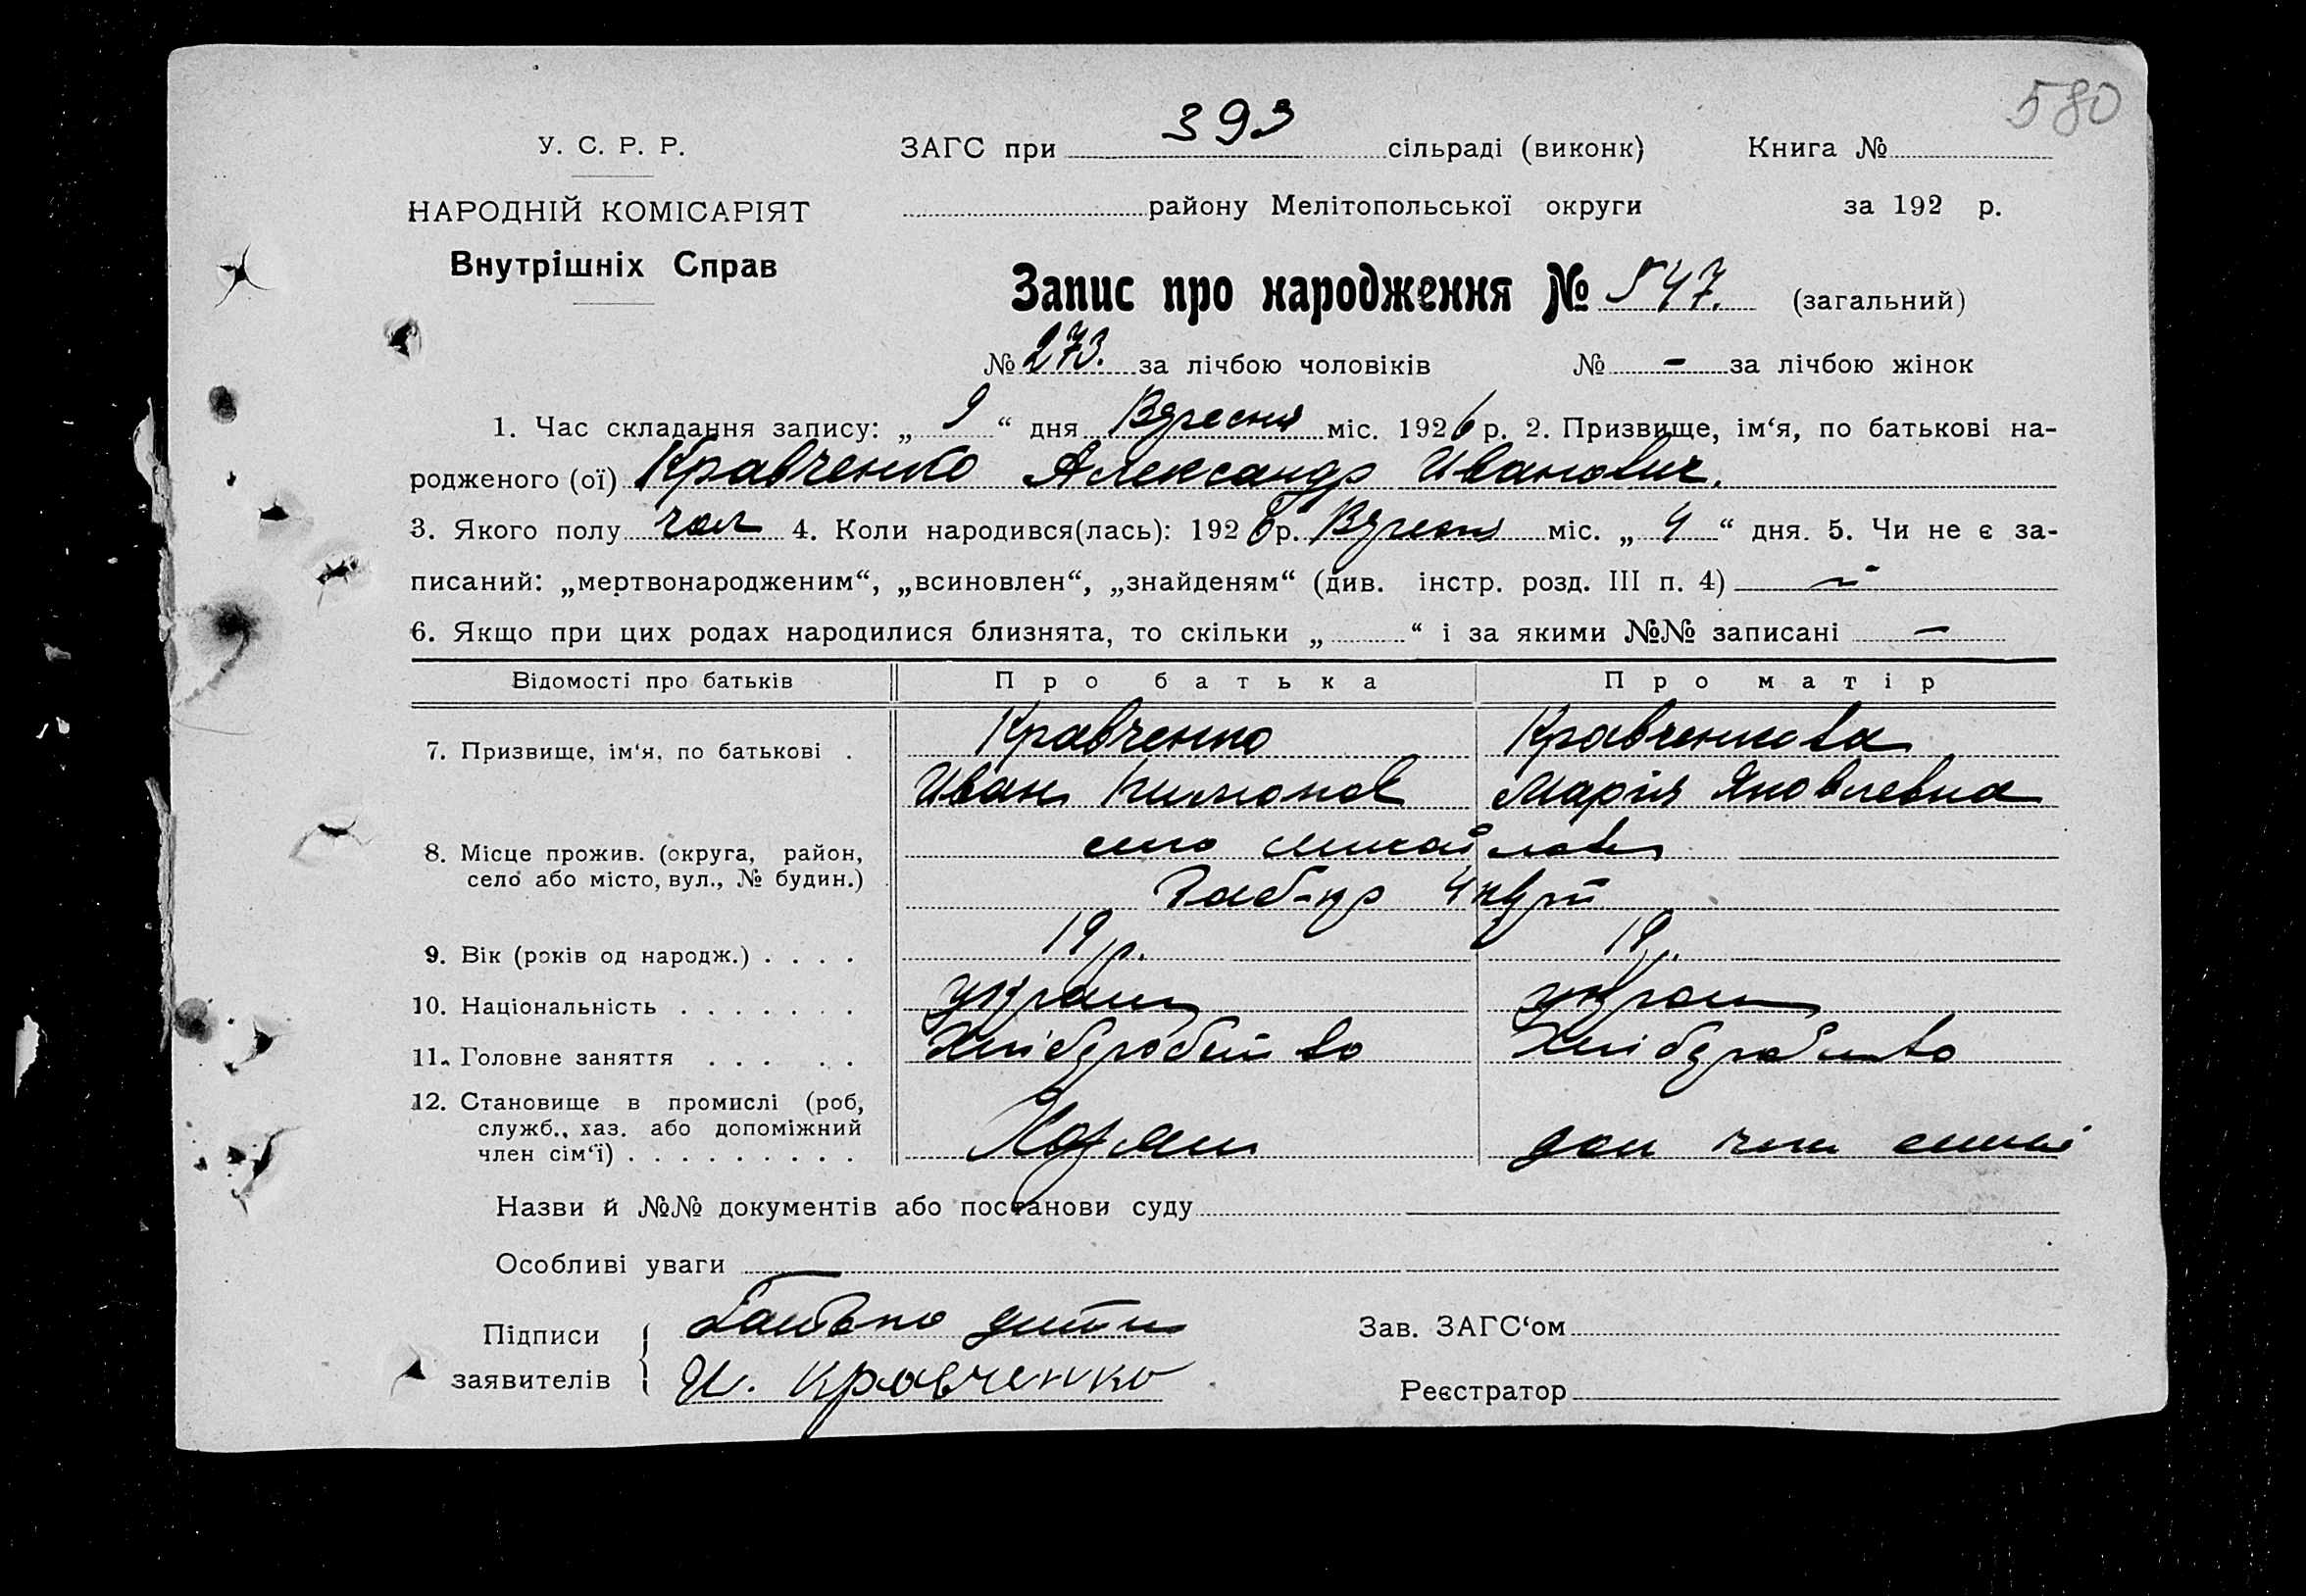 580
У. С. Р. Р.
ЗАГС при 393 сільраді (виконк) Книга №
НАРОДНІЙ КОМІСАРІЯТ
району Мелітопольської округи за 192 р.
Внутрішніх Справ
Запис про народження № 547. (загальний)
№ 273. за лічбою чоловіків № - за лічбою жінок
1. Час складання запису: „ 9 “ дня Вересня міс. 1926 р. 2. Призвище, ім‘я, по батькові на-
родженого (ої) Кравченко Александр Иванович.
3. Якого полу чол 4. Коли народився(лась): 1926 р. Вересня міс. „ 4 “ дня. 5. Чи не є за-
писаний: „мертвонародженим“, „всиновлен“, „знайденям“ (див. інстр. розд. III п. 4)
6. Якщо при цих родах народилися близнята, то скільки „ “ і за якими №№ записані —
Відомості про батьків Про батька Про матір
7. Призвище, ім‘я, по батькові . Кравченко Кравченкова
Иван Мария Яковлевна
8. Місце прожив. (округа, район, село або місто, вул., № будин.)
село
9. Вік (років од народж.) . . . . 19 р. 19 р.
10. Національність . . . . . . . україн україн
11. Головне заняття . . . . . Хлібробство Хлібробство
12. Становище в промислі (роб, служб., хаз. або допоміжний член сім‘ї) . . . . . . . . . Хазяин доп член сімї
Назви й №№ документів або постанови суду
Особливі уваги
Підписи заявителів
Батько дити
И. Кравченко
Зав. ЗАГС‘ом
Реєстратор